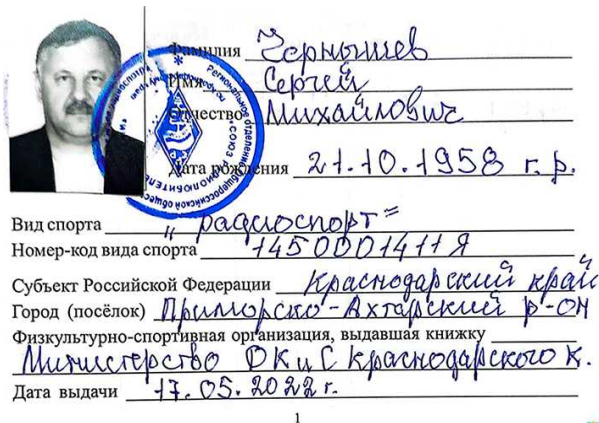 Фамилия Чернышев
Имя Сергей
Отчество Михайлович
Дата рождения 21.10.1958 г.р.
Вид спорта "радиоспорт"
Номер-код вида спорта 1450001411Я
Субъект Российской Федерации Краснодарский край
Город (посёлок) Приморско-Ахтарский р-он
Физкультурно-спортивная организация, выдавшая книжку
Министерство ФК и С Краснодарского к.
Дата выдачи 17.05.2022 г.
1